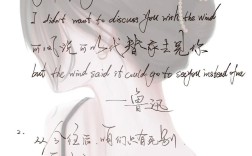 I didn't want to discuss you with the wind
可风说可以代替我去见你
but the wind said it could go to see you instead of me
——鲁迅
2.
从今往后，咱们只有死别